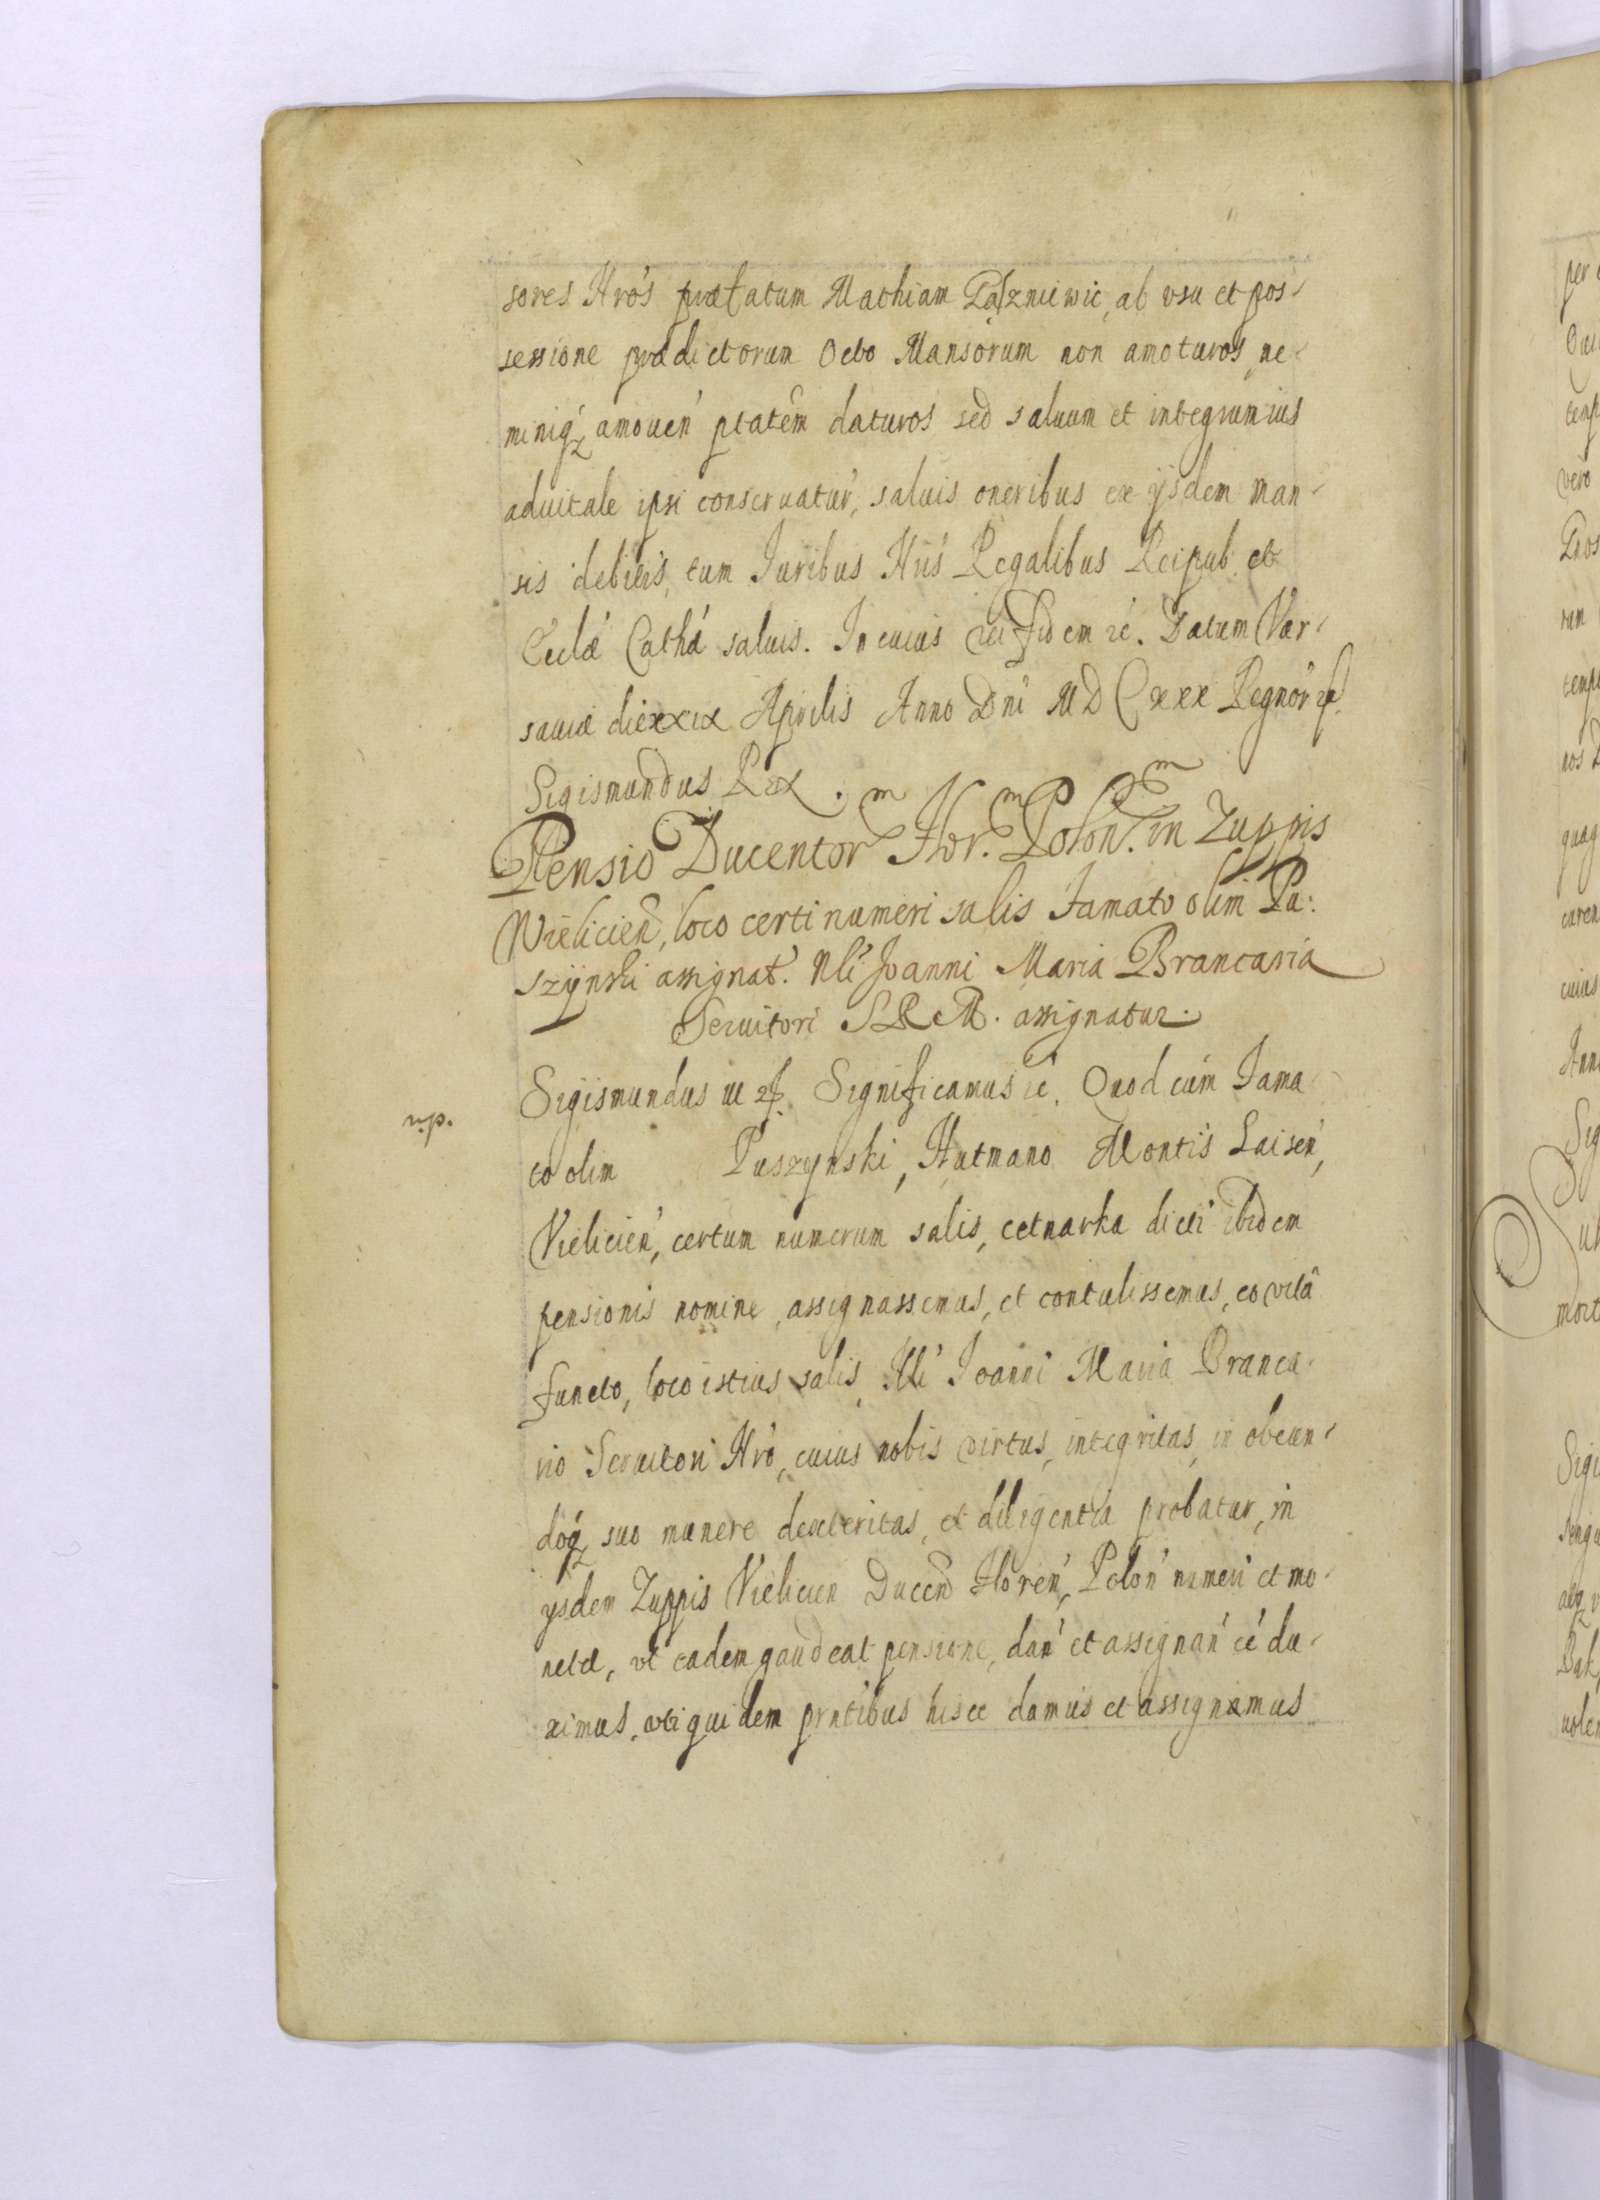 sores Nrōs præfatum Mathiam ab vsu et pos-
sessione prædictorum Octo Mansorum non amoturos, ne-
miniq; amouen' ptatem daturos sed saluum et integrum ius
aduitale ipsi conseruatur', saluis oneribus ex ijsdem man-
sis debitis, tum Iuribus Nris Regalibus Reipub. et
Eccla' Catha' saluis. In cuius rei fidem &c. Datum Var-
sauiæ die xxix Aprilis Anno Dni MDCxxx Regnor'
Sigismundus Rex.
Pensio Ducentor.m Flor.m Polon.m in Zuppis
Wielicien, loco certi numeri salis Famato olim Pu:
szÿnski assignat. Nli Joanni Maria Brancaria
Seruitori S R M. assignatur.
Sigismundus III Significamus &c. Quod cum Fama
to olim Puszynski, Hutmano Montis
Vielicien', certum numerum salis, cetnarka dicti ibidem
pensionis nomine, assignassemus, et contulissemus, eo vitâ
functo, loco istius salis, Nli Ioanni Maria Branca-
rio Seruitori Nrō, cuius nobis virtus, integritas, in obeun-
doq; suo munere dexteritas, et diligentia probatur, in
ysdem Zuppis Vielicien Ducen Floren', Polon' numeri et mo-
netæ, vt eadem gaudeat pensione, dan' et assignan' ee' du-
ximus, vti quidem pntibus hisce damus et assignamus